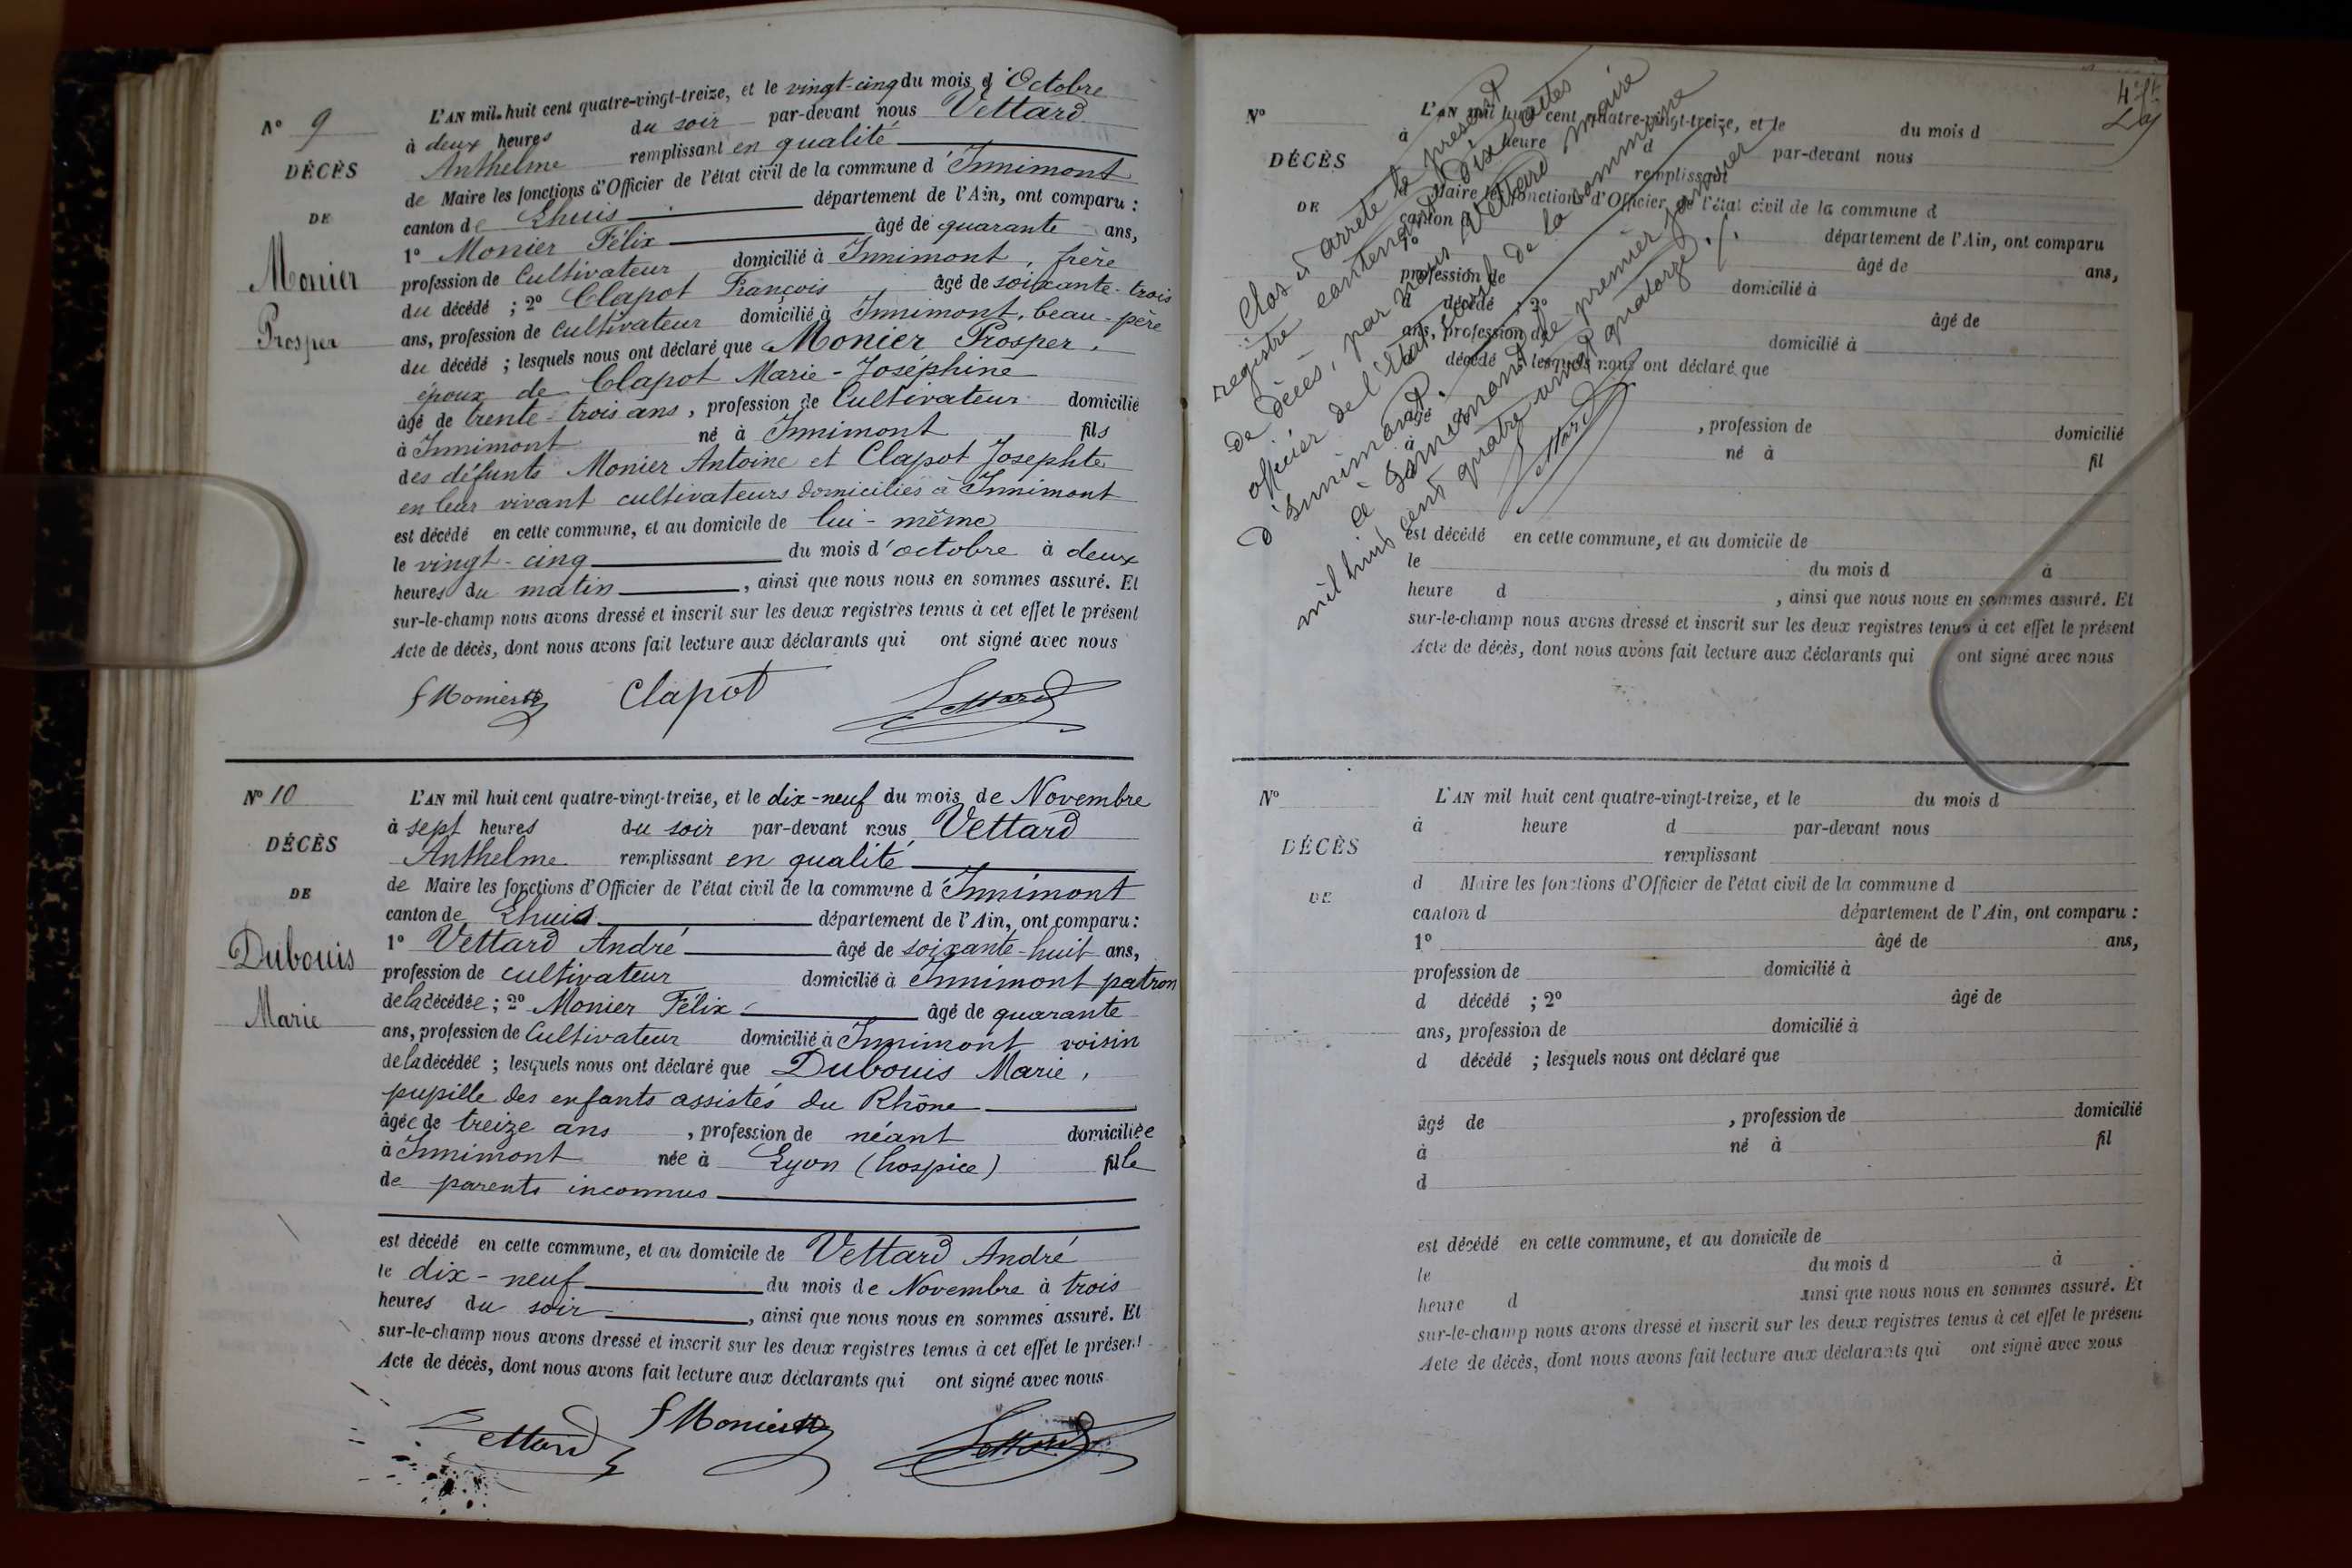 N° 9
DÉCÈS
DE
Monier
Prosper
L'AN mil huit cent quatre-vingt-treize, et le vingt-cinq du mois d'Octobre
à deux heures du soir par-devant nous Vettard
Anthelme remplissant en qualité
de Maire les fonctions d'Officier de l'état civil de la commune d'Innimont
canton de Lhuis département de l'Ain, ont comparu :
1° Monier Félix âgé de quarante ans,
profession de Cultivateur domicilié à Innimont, frère
du décédé ; 2° Clapot François âgé de soixante-trois
ans, profession de Cultivateur domicilié à Innimont, beau-père
du décédé ; lesquels nous ont déclaré que Monier Prosper,
époux de Clapot Marie-Joséphine
âgé de trente-trois ans, profession de Cultivateur domicilié
à Innimont né à Innimont fils
des défunts Monier Antoine et Clapot Josephte
en leur vivant cultivateurs domiciliés à Innimont
est décédé en cette commune, et au domicile de lui-même
le vingt-cinq du mois d'octobre à deux
heures du matin, ainsi que nous nous en sommes assuré. Et
sur-le-champ nous avons dressé et inscrit sur les deux registres tenus à cet effet le présent
Acte de décès, dont nous avons fait lecture aux déclarants qui ont signé avec nous
f Monier Clapot Vettard
N° 10
DÉCÈS
DE
Dubouis
Marie
L'AN mil huit cent quatre-vingt-treize, et le dix-neuf du mois de Novembre
à sept heures du soir par-devant nous Vettard
Anthelme remplissant en qualité
de Maire les fonctions d'Officier de l'état civil de la commune d'Innimont
canton de Lhuis département de l'Ain, ont comparu :
1° Vettard André âgé de soixante-huit ans,
profession de cultivateur domicilié à Innimont patron
de la décédée ; 2° Monier Félix âgé de quarante
ans, profession de Cultivateur domicilié à Innimont voisin
de la décédée ; lesquels nous ont déclaré que Dubouis Marie,
pupille des enfants assistés du Rhône
âgée de treize ans, profession de néant domiciliée
à Innimont née à Lyon (hospice) fille
de parents inconnus
est décédé en cette commune, et au domicile de Vettard André
le dix-neuf du mois de Novembre à trois
heures du soir, ainsi que nous nous en sommes assuré. Et
sur-le-champ nous avons dressé et inscrit sur les deux registres tenus à cet effet le présent
Acte de décès, dont nous avons fait lecture aux déclarants qui ont signé avec nous
Vettard f Monier Vettard
Clos et arrêté le présent
registre contenant dix actes
de décès, par nous Vettard maire
officier de l'état civil de la commune
d'Innimont
à Innimont le premier janvier
mil huit cent quatre vingt quatorze ./.
Vettard
N°
DÉCÈS
DE
L'AN mil huit cent quatre-vingt-treize, et le du mois d
à heure d par-devant nous
remplissant
d Maire les fonctions d'Officier de l'état civil de la commune d
canton d département de l'Ain, ont comparu
1° âgé de ans,
profession de domicilié à
d décédé ; 2° âgé de
ans, profession de domicilié à
d décédé ; lesquels nous ont déclaré que
âgé , profession de domicilié
à né à fil
est décédé en cette commune, et au domicile de
le du mois d à
heure d , ainsi que nous nous en sommes assuré. Et
sur-le-champ nous avons dressé et inscrit sur les deux registres tenus à cet effet le présent
Acte de décès, dont nous avons fait lecture aux déclarants qui ont signé avec nous
N°
DÉCÈS
DE
L'AN mil huit cent quatre-vingt-treize, et le du mois d
à heure d par-devant nous
remplissant
d Maire les fonctions d'Officier de l'état civil de la commune d
canton d département de l'Ain, ont comparu :
1° âgé de ans,
profession de domicilié à
d décédé ; 2° âgé de
ans, profession de domicilié à
d décédé ; lesquels nous ont déclaré que
âgé de , profession de domicilié
à né à fil
d
est décédé en cette commune, et au domicile de
le du mois d à
heure d ainsi que nous nous en sommes assuré. Et
sur-le-champ nous avons dressé et inscrit sur les deux registres tenus à cet effet le présent
Acte de décès, dont nous avons fait lecture aux déclarants qui ont signé avec nous